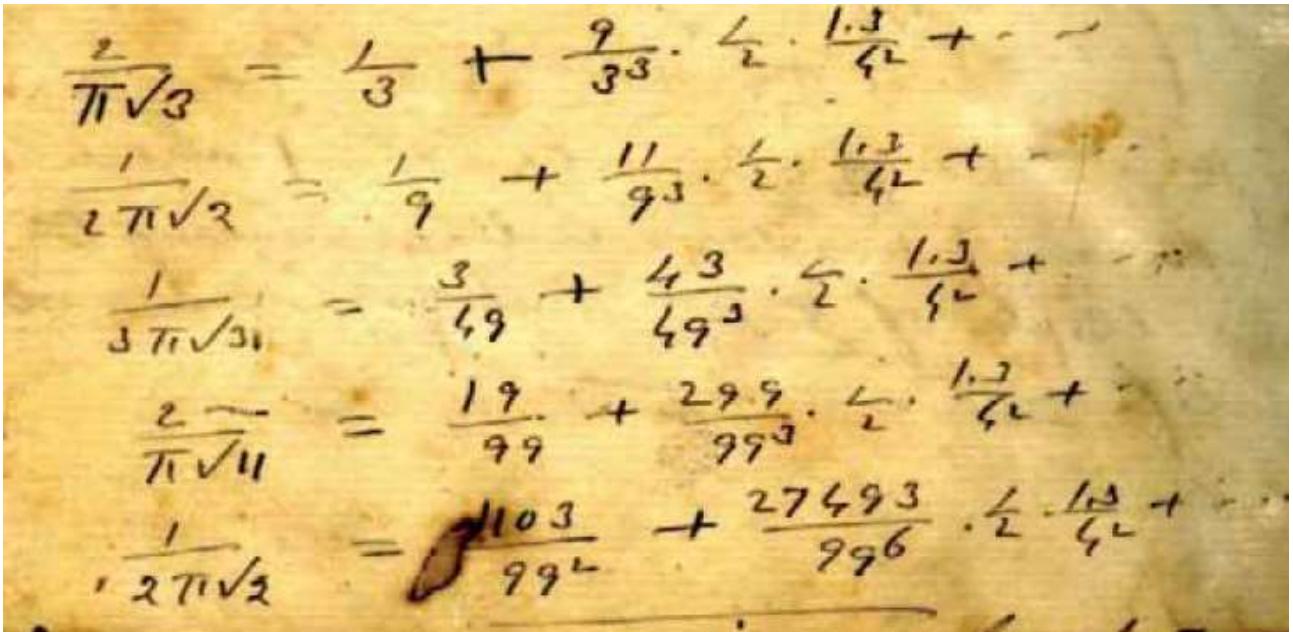 2/(π√3) = 1/3 + 9/3³ · 1/2 · 1.3/4² + - - -
1/(2π√2) = 1/9 + 11/9³ · 1/2 · 1.3/4² + - - -
1/(3π√3) = 3/49 + 43/49³ · 1/2 · 1.3/4² + - - -
2/(π√11) = 19/99 + 299/99³ · 1/2 · 1.3/4² + - - -
1/(2π√2) = 1103/99² + 27493/99⁶ · 1/2 · 1.3/4² + - - -